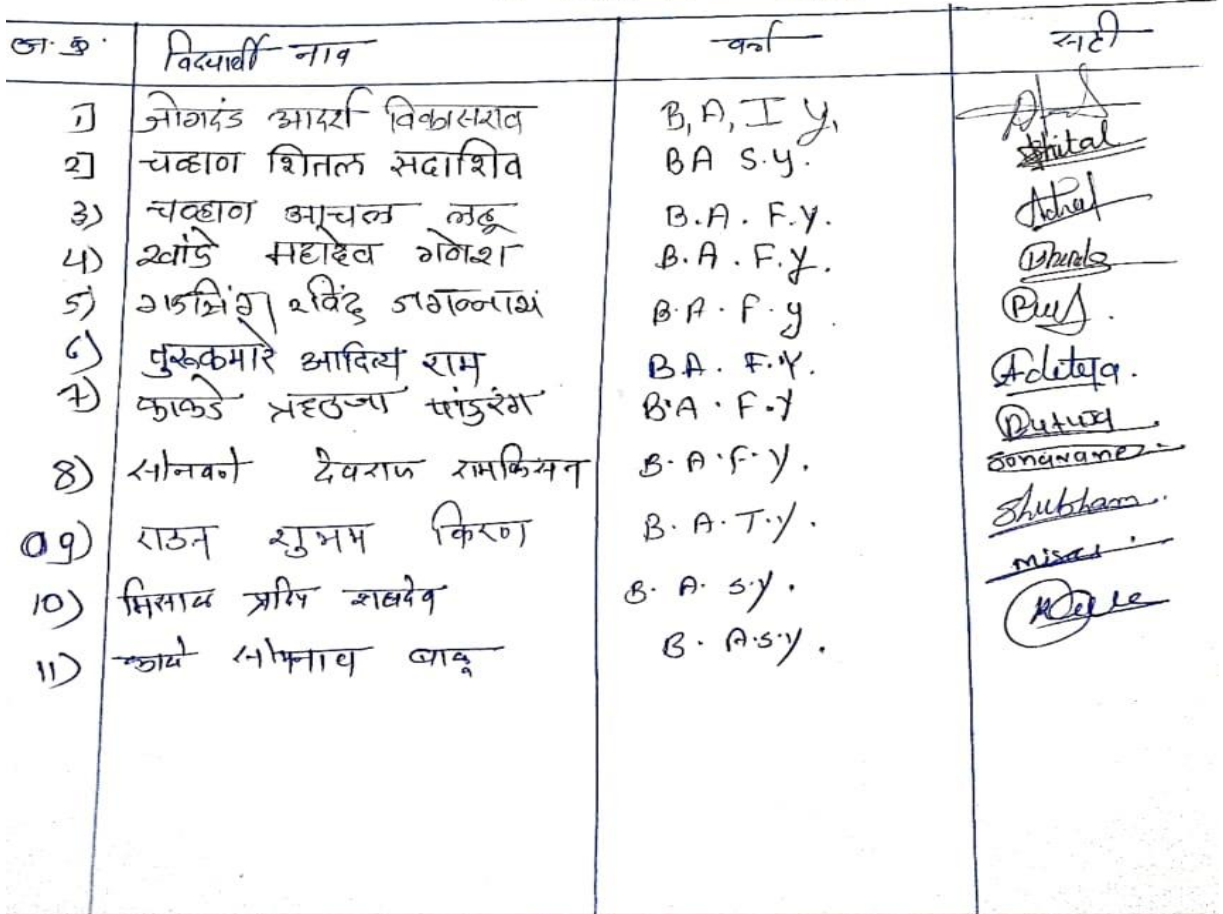 अ. क्र. विद्यार्थी नाव वर्ग सही
1] जोगदंड आदर्श विकासराव B, A, I Y,
2] चव्हाण शितल सदाशिव BA S.Y. Shital
3) चव्हाण आचल लहू B.A. F.Y.
4) खांडे महादेव गणेश B.A. F.Y.
5) गडसिंग रविंद्र जगन्नाथ B.A. F.Y.
6) पुरूकमारे आदित्य राम B.A. F.Y. Aditya.
7) काकडे ऋतुजा पांडुरंग B.A. F.Y Rutuja
8) सोनवणे देवराज रामकिसन B.A.F.Y. Sonavane
9) राऊत शुभम किरण B.A.T.Y. Shubham
10) मिसाळ B.A. S.Y. misal
11) B.A.S.Y.